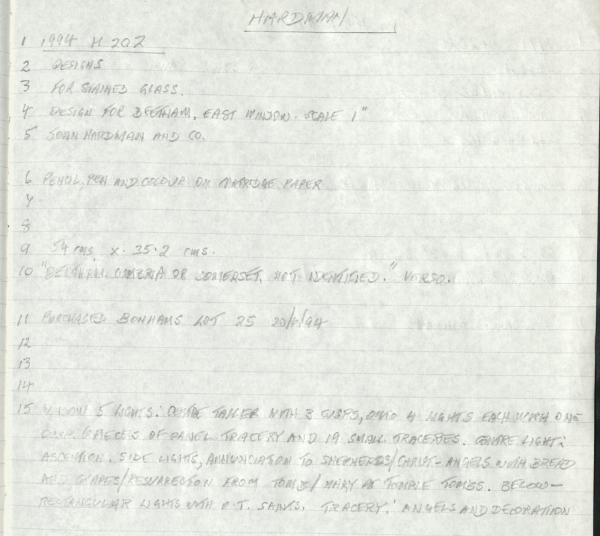 HARDMAN
1 1994 H 202
2 DESIGNS
3 FOR STAINED GLASS.
4 DESIGN FOR BEETHAM, EAST WINDOW. SCALE 1"
5 JOHN HARDMAN AND CO.
6 PENCIL, PEN AND COLOUR ON CARTRIDGE PAPER
7
8
9 54 cms x 35.2 cms.
10 "BEETHAM. CUMBRIA OR SOMERSET, NOT IDENTIFIED." VERSO.
11 PURCHASED BONHAMS LOT 25 /94
12
13
14
15 WINDOW 5 LIGHTS. CENTRE TALLER WITH 3 CUSPS, 4 LIGHTS EACH WITH ONE
PIECES OF PANEL TRACERY AND 19 SMALL TRACERIES. CENTRE LIGHT:
ASCENTION. SIDE LIGHTS, ANNUNCIATION TO SHEPHERDS/CHRIST - ANGELS WITH BREAD
AND GRAPES/RESURRECTION FROM TOMB/MARY AT TOMBS. BELOW-
RECTANGULAR LIGHTS WITH O.T. SAINTS. TRACERY: ANGELS AND DECORATION